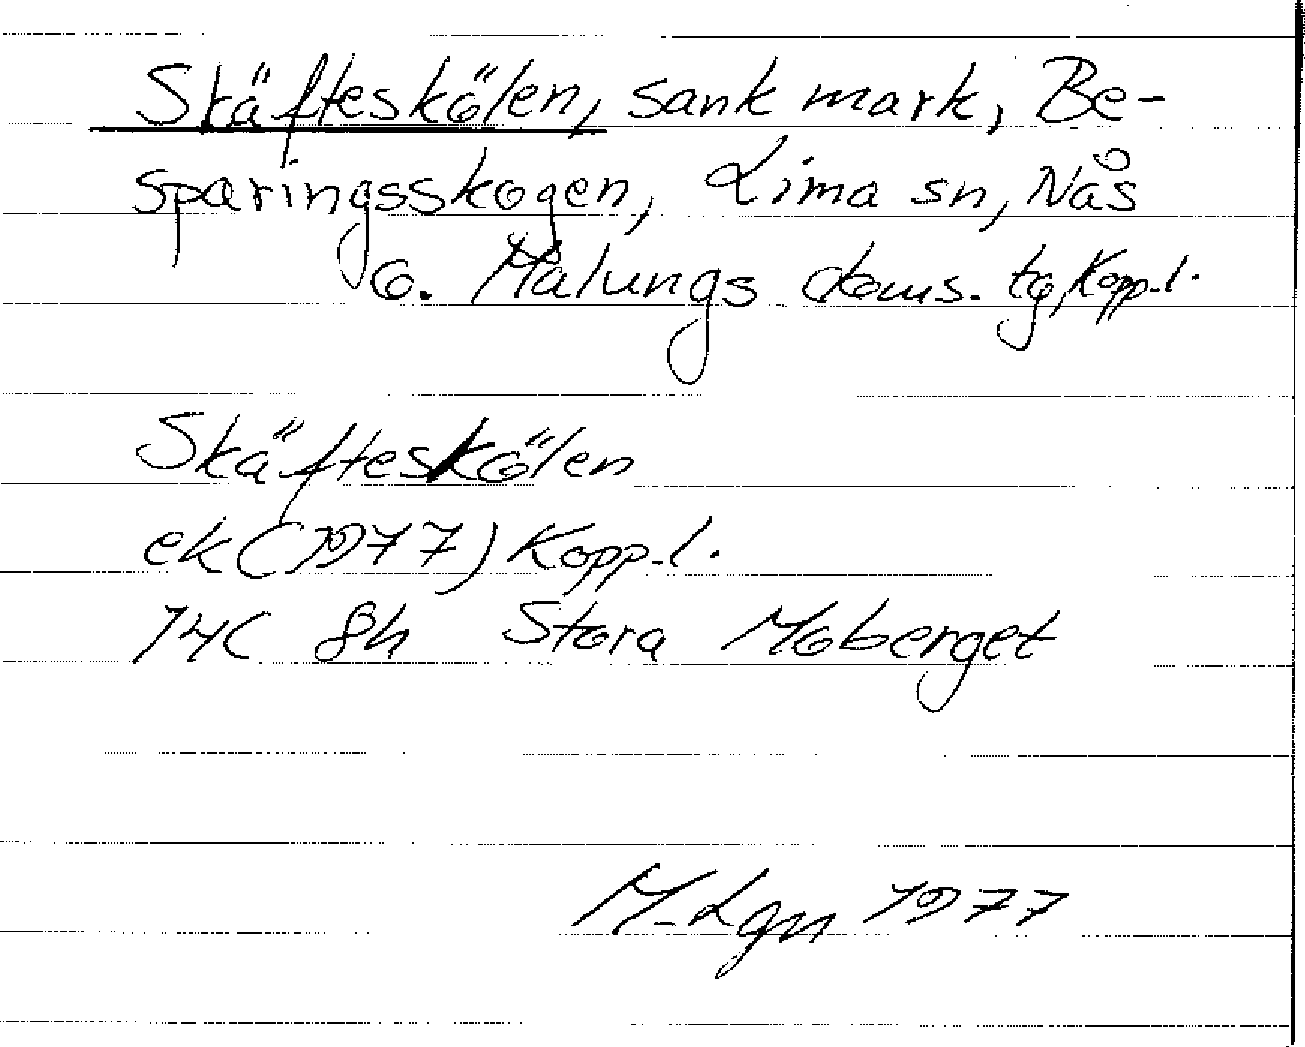 Skäfteskölen, sank mark, Be-
sparingsskogen, Lima sn, Nås
o. Malungs doms. tg, Kopp.l.
Skäfteskölen
ek (1977) Kopp.l.
14C 8h Stora Moberget
M-Lgn 1977